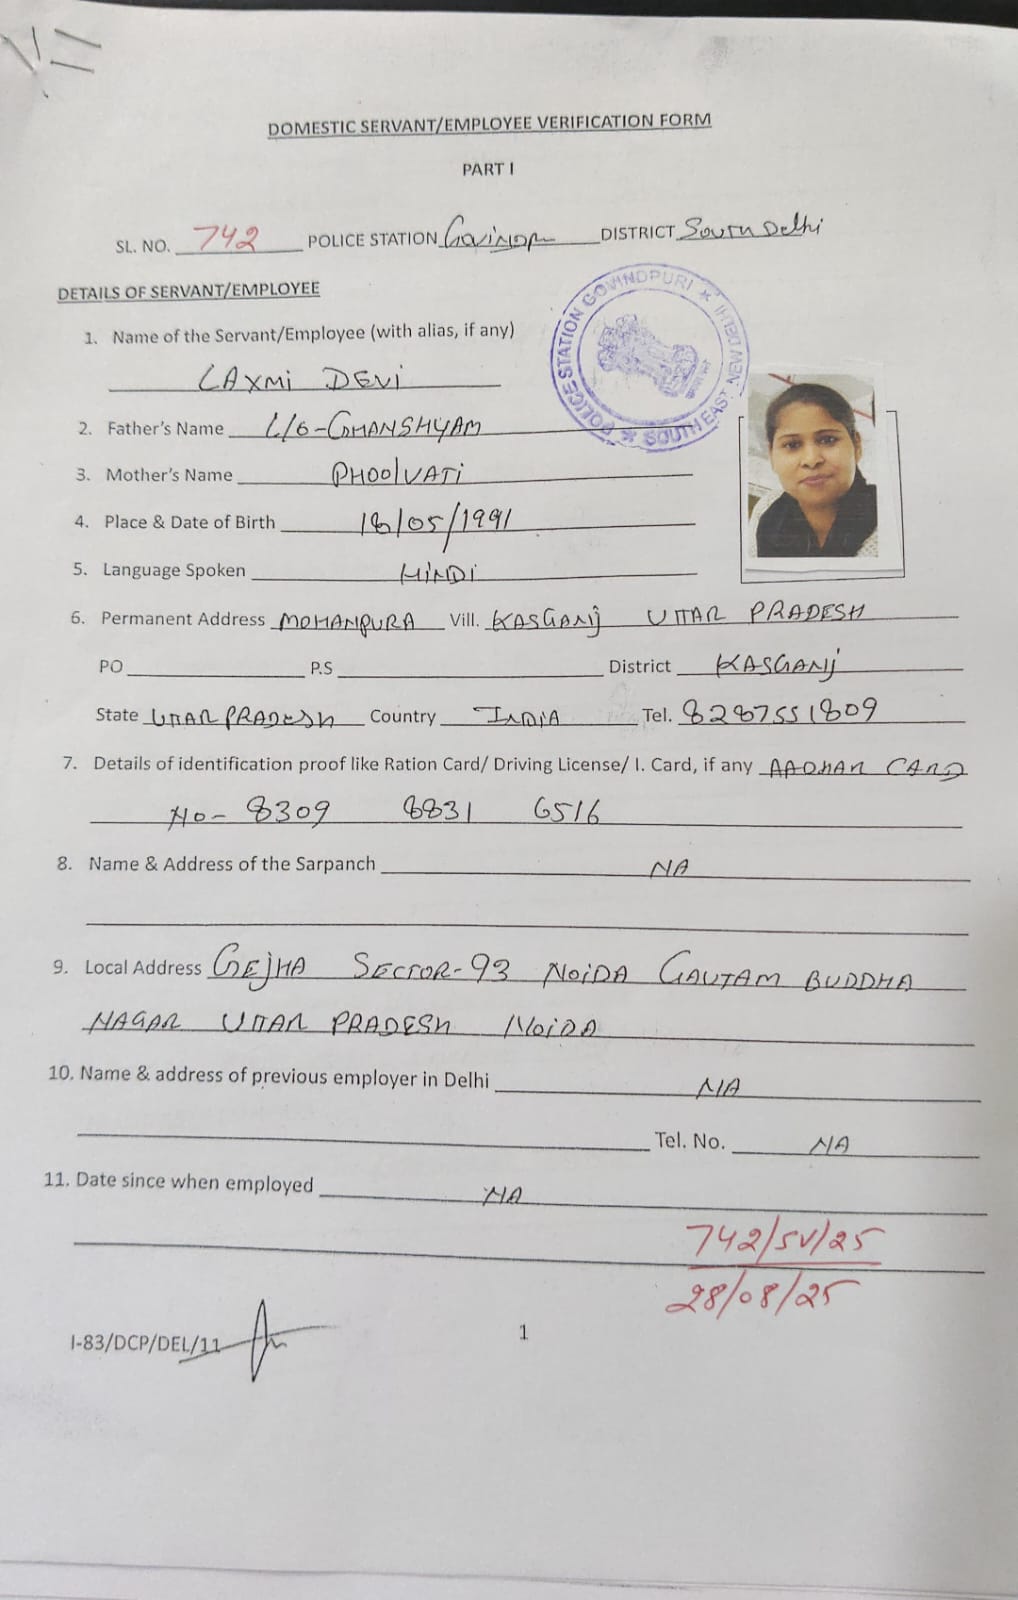 DOMESTIC SERVANT/EMPLOYEE VERIFICATION FORM
PART I
SL. NO. 742 POLICE STATION DISTRICT South Delhi
DETAILS OF SERVANT/EMPLOYEE
POLICE STATION GOVINDPURI * SOUTH EAST NEW DELHI *
1. Name of the Servant/Employee (with alias, if any)
LAXMI DEVI
2. Father's Name GHANSHYAM
3. Mother's Name PHOOLVATI
4. Place & Date of Birth 18/05/1991
5. Language Spoken HINDI
6. Permanent Address MOHANPURA Vill. KASGANJ UTTAR PRADESH
PO P.S District KASGANJ
State UTTAR PRADESH Country INDIA Tel. 8287551809
7. Details of identification proof like Ration Card/ Driving License/ I. Card, if any AADHAR CARD
NO- 8309 8831 6516
8. Name & Address of the Sarpanch NA
9. Local Address GEJHA SECTOR-93 NOIDA GAUTAM BUDDHA
NAGAR UTTAR PRADESH NOIDA
10. Name & address of previous employer in Delhi NA
Tel. No. NA
11. Date since when employed NA
742/SV/25
28/08/25
I-83/DCP/DEL/11
1